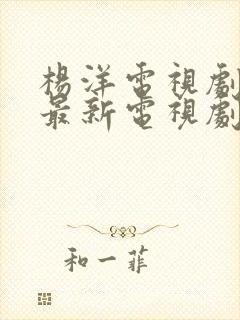 楊洋電視劇
最新電視劇
和一菲